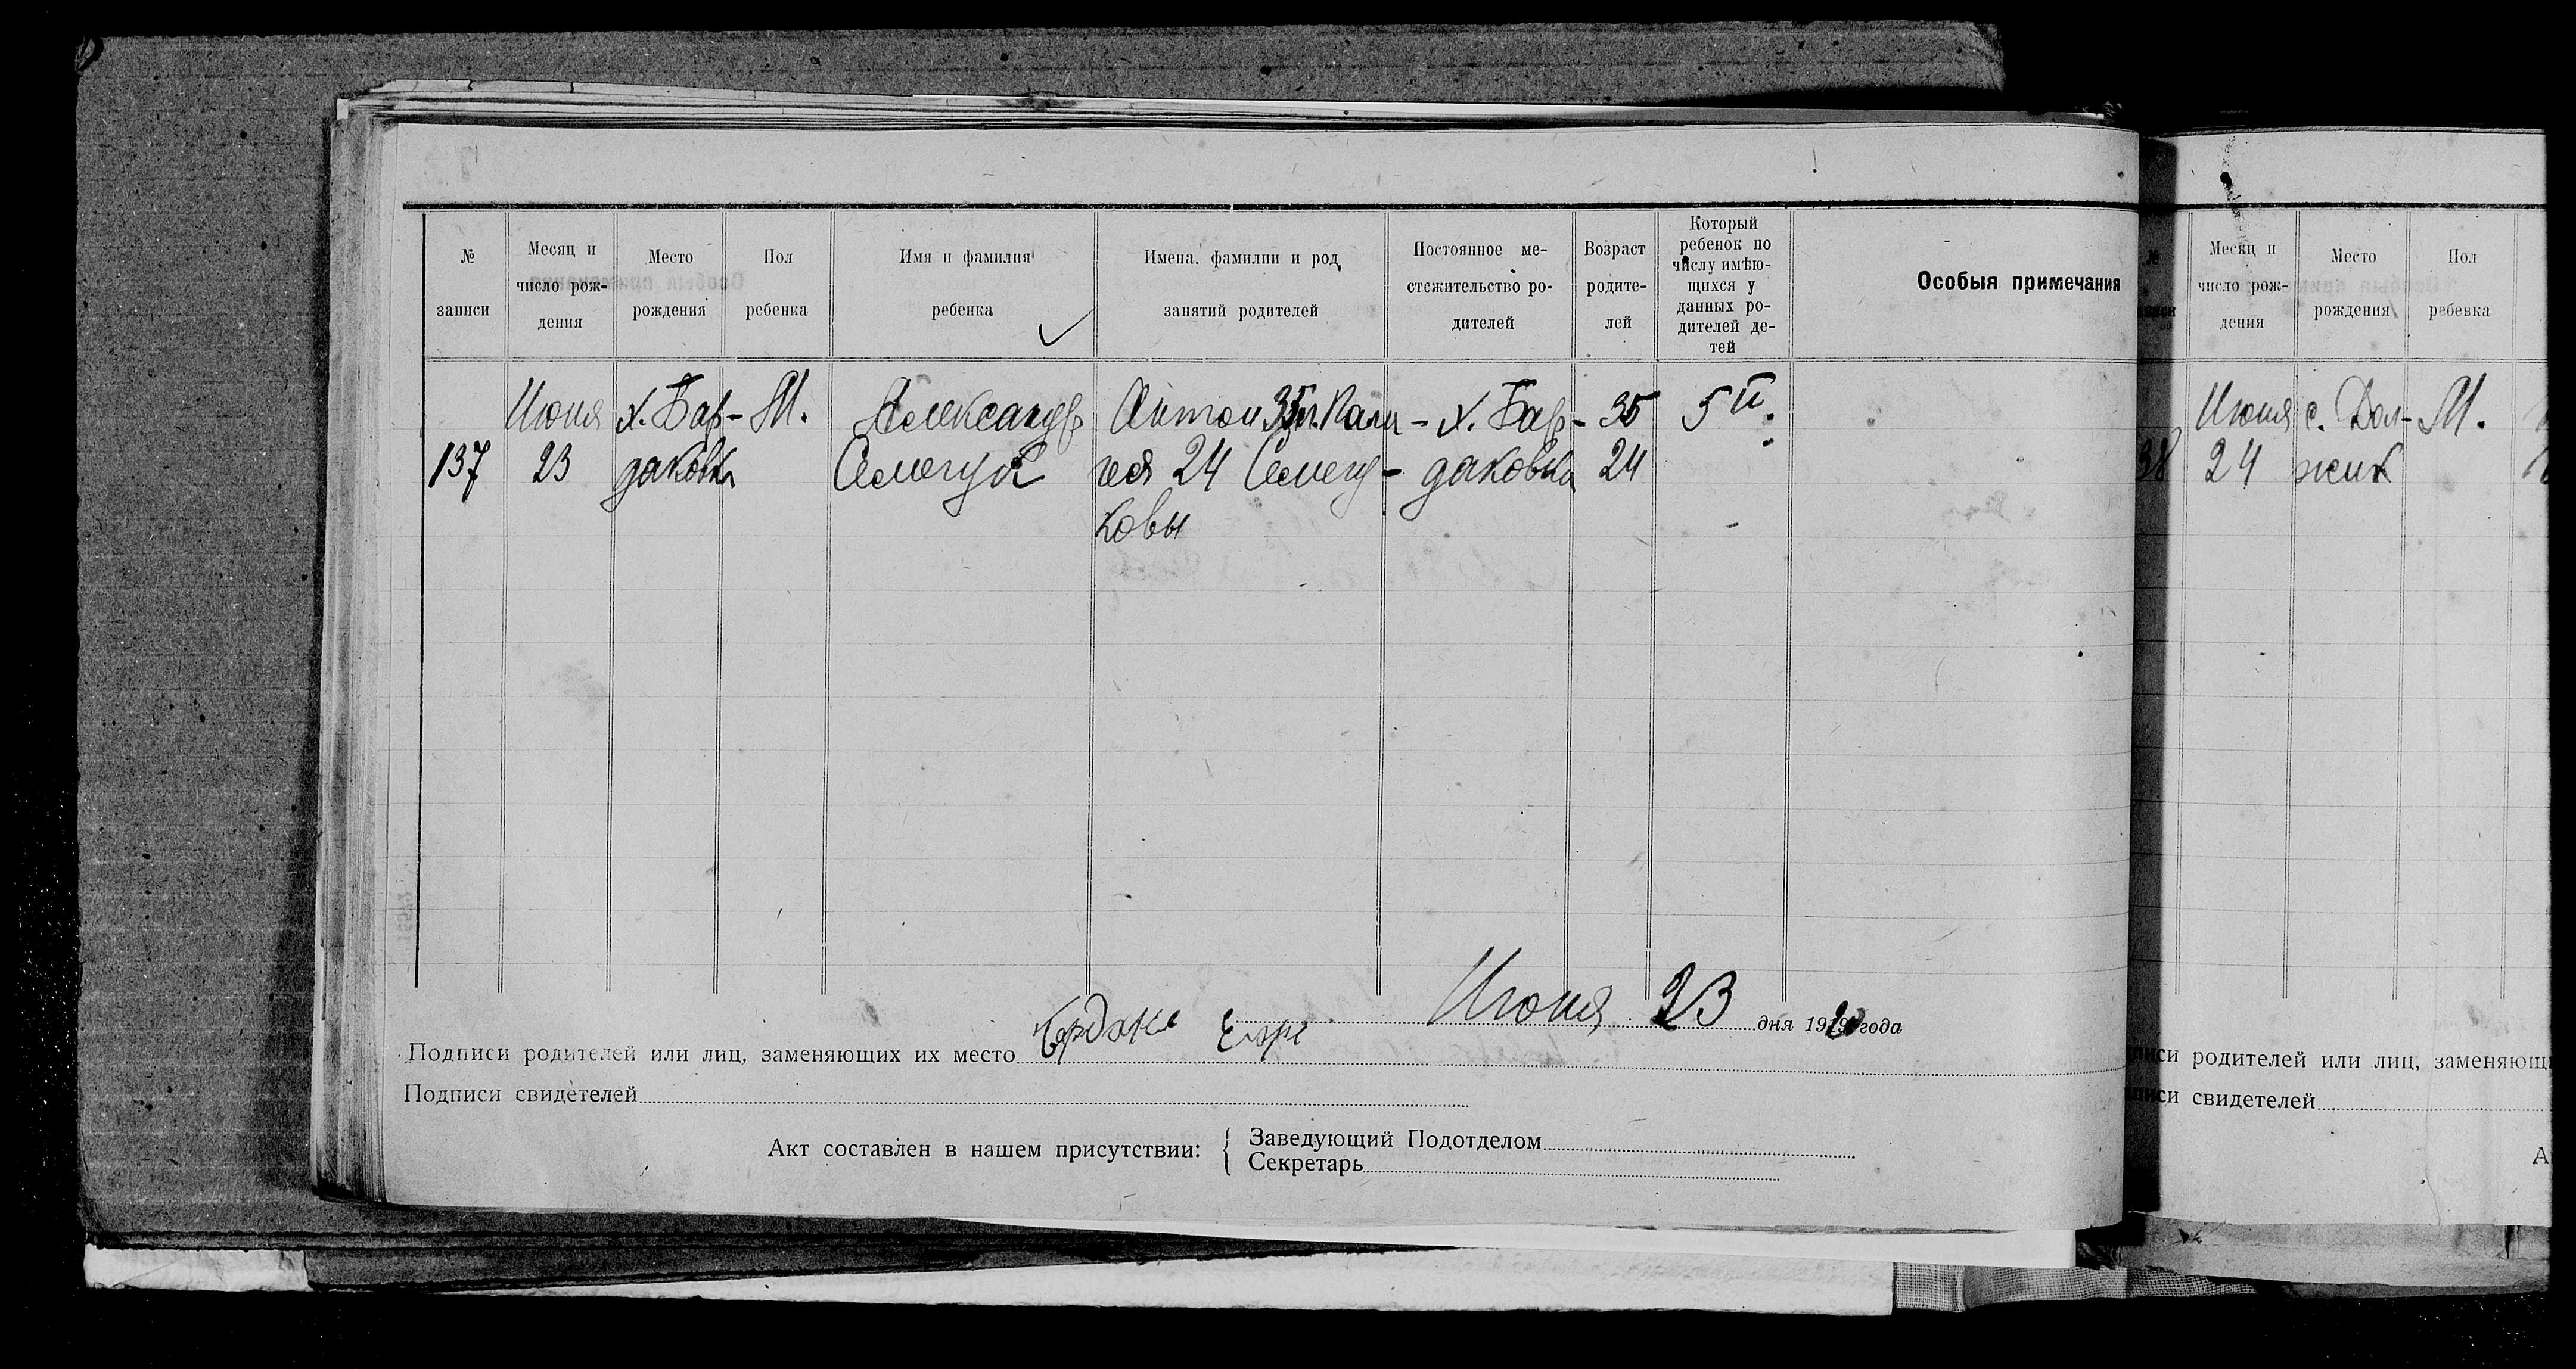 № записи
Месяц и число рождения
Место рождения
Пол ребенка
Имя и фамилия ребенка
Имена. фамилии и род занятий родителей
Постоянное местежительство родителей
Возраст родителей
Который ребенок по числу имѣющихся у данных родителей детей
Особыя примечания
Июня х. Бар- М. Александр Антон 35 л. - х. Бар- 35 5й
137 23 даковка 24 даковка 24
ковы
Июня 23 дня 1920 года
Подписи родителей или лиц, заменяющих их место
Подписи свидетелей
Акт составлен в нашем присутствии: { Заведующий Подотделом
Секретарь
Месяц и число рождения
Место рождения
Пол ребенка
Июня с. Дол- М.
38 24 жик
писи родителей или лиц, заменяющ
писи свидетелей
А